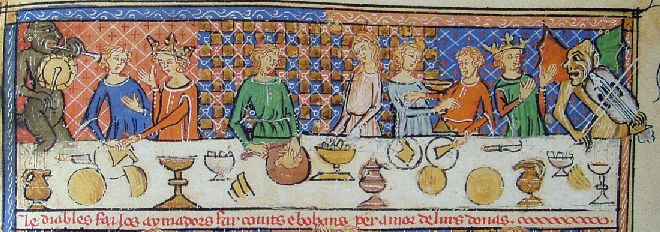 Le diables fai los aymadors far conuits e bobans per amor de lurs donas.